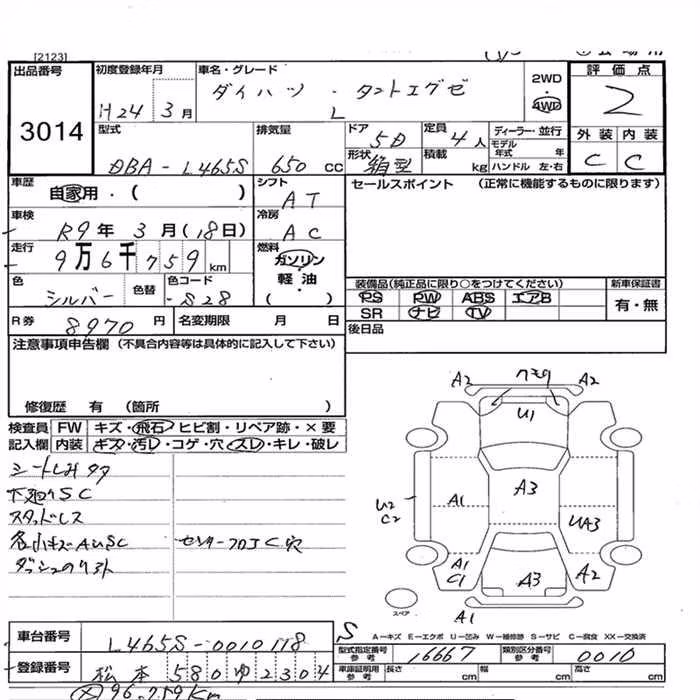 [2123]
出品番号
3014
初度登録年月
H24 3月
車名・グレード
ダイハツ ・ タントエグゼ
L
2WD
・
4WD
評価点
2
外装 内装
C C
型式
DBA-L465S
排気量
650 cc
ドア
5D
定員
4人
形状
箱型
積載
kg
ディーラー・並行
モデル年式 年
ハンドル 左・右
車歴
自家用・( )
シフト
AT
セールスポイント (正常に機能するものに限ります)
車検
R9年 3月(18日)
冷房
AC
走行
9万6千759km
燃料
ガソリン
・
軽油
( )
色
シルバー
色替
色コード
S28
装備品(純正品に限り○をつけてください)
PS PW ABS エアB
SR ナビ TV
新車保証書
有・無
R券 8970円
名変期限 月 日
後日品
注意事項申告欄 (不具合内容等は具体的に記入して下さい)
修復歴 有 (箇所 )
検査員 FW キズ・飛石・ヒビ割・リペア跡・×要
記入欄 内装 キズ・汚レ・コゲ・穴・スレ・キレ・破レ
シートしみ
下廻りSC
スタッドレス
各小キズAUSC
センターフロアC穴
A2
クモリ
A2
U1
A1
A3
U2
C2
UA3
A1
C1
A3
A2
スペア
A1
S
A-キズ E-エクボ U-凹み W-補修跡 S-サビ C-腐食 XX-交換済
車台番号
L465S-0010118
型式指定番号 参考
16667
類別区分番号 参考
0010
登録番号
松本580ゆ2304
車庫証明用 参考
長さ
幅
高さ
96.759Km